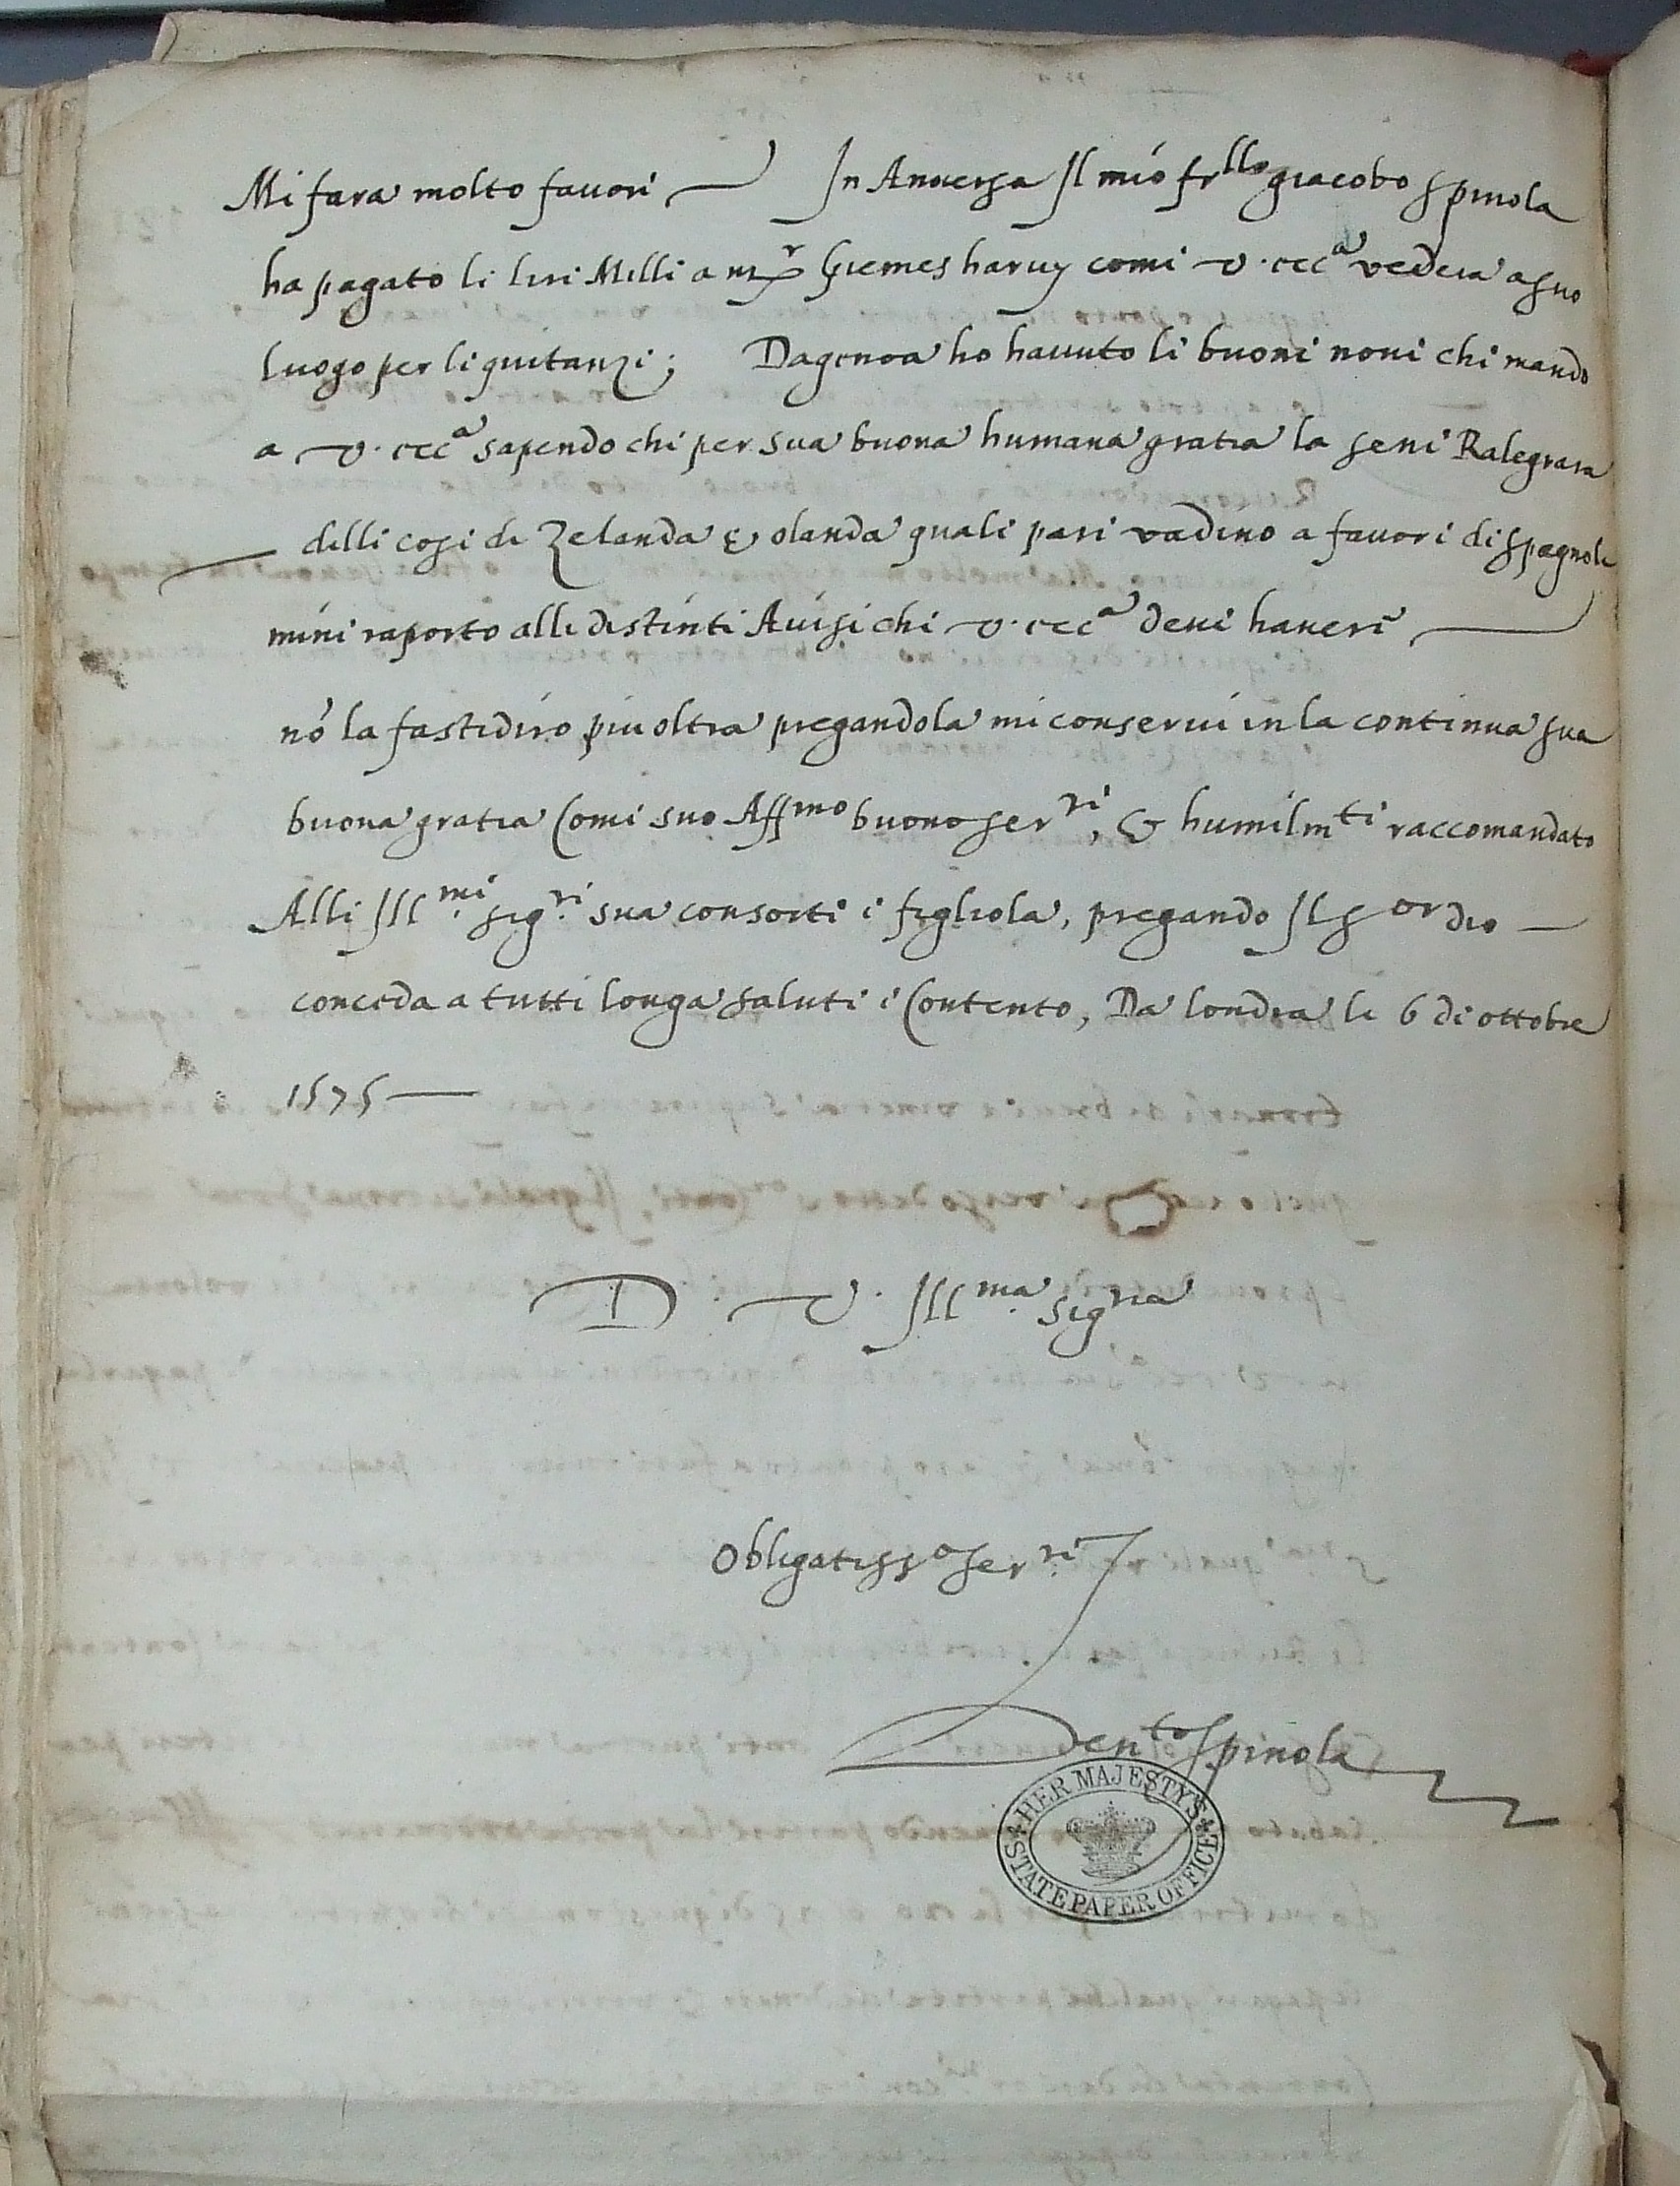 Mi fara molto favori — In Anversa Il mio frllo giacobo spinola
ha pagato li liri Milli a mr Giemes harvy comi v. ecca vedera a suo
luogo per li quitanzi; Da genoa ho havuto li buoni novi chi mando
a v. ecca sapendo chi per sua buona humana gratia la seni Ralegrara
— delli cosi di Zelanda & olanda quali pari vadino a favori di spagnoli
mini raporto alli distinti Avisi chi v. ecca devi haveri —
nō la fastidiro piu oltra pregandola mi conservi in la continua sua
buona gratia Comi suo Affmo buono serri, & humilmti raccomandato
Alli Illmi sigri sua consorti i figliola, pregando Il sor dio —
conceda a tutti longa saluti i Contento, Da londra li 6 di ottobre
1575 —
D. V. Illma sigria
Obligatisso serri
Bento Spinola
HER MAJESTY'S
STATE PAPER OFFICE